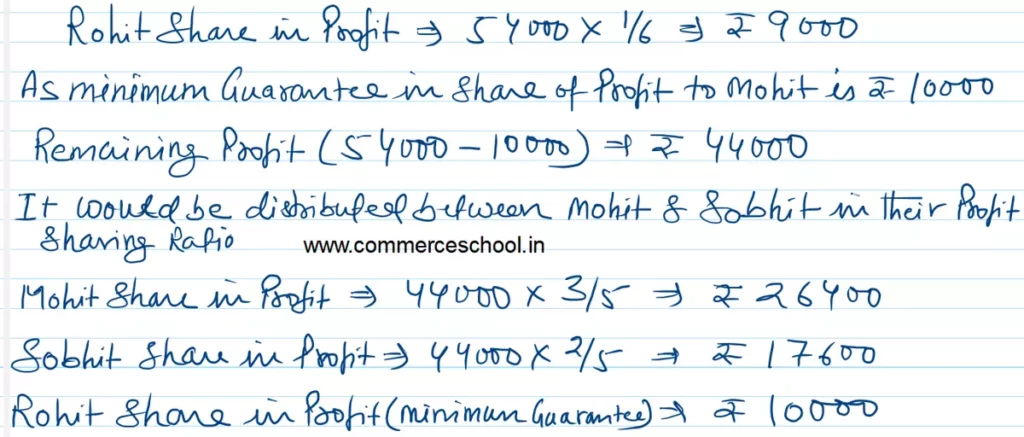 Rohit Share in Profit ⇒ 54000 × 1/6 ⇒ ₹ 9000
As minimum Guarantee in Share of Profit to Mohit is ₹ 10000
Remaining Profit (54000 - 10000) ⇒ ₹ 44000
It would be distributed between Mohit & Sobhit in their Profit
Sharing Ratio
www.commerceschool.in
Mohit Share in Profit ⇒ 44000 × 3/5 ⇒ ₹ 26400
Sobhit Share in Profit ⇒ 44000 × 2/5 ⇒ ₹ 17600
Rohit Share in Profit (minimum Guarantee) ⇒ ₹ 10000